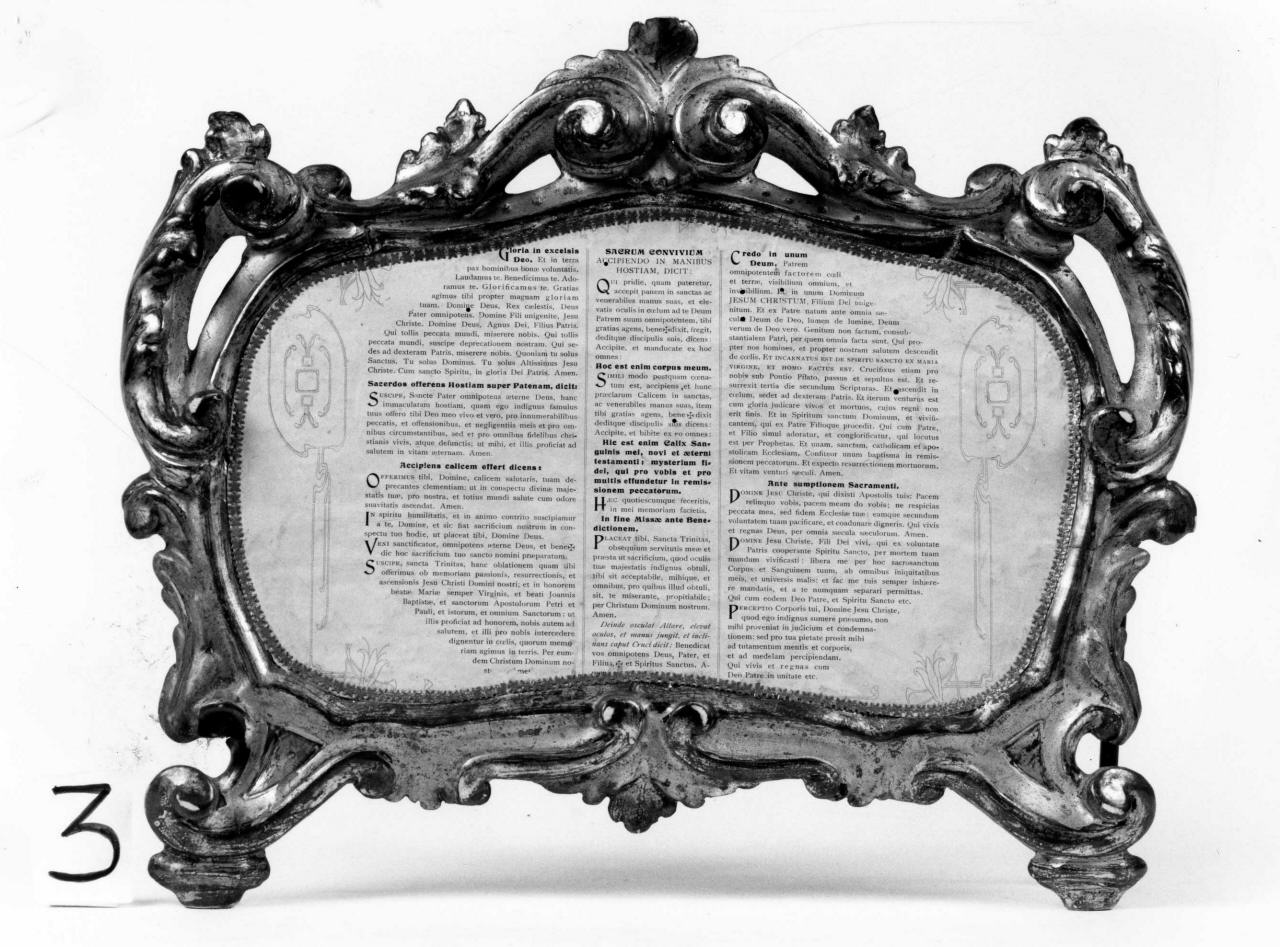 Gloria in excelsis
Deo. Et in terra
pax hominibus bonæ voluntatis.
Laudamus te. Benedicimus te. Ado-
ramus te. Glorificamus te. Gratias
agimus tibi propter magnam gloriam
tuam. Domine Deus, Rex cælestis, Deus
Pater omnipotens. Domine Fili unigenite, Jesu
Christe. Domine Deus, Agnus Dei, Filius Patris.
Qui tollis peccata mundi, miserere nobis. Qui tollis
peccata mundi, suscipe deprecationem nostram. Qui se-
des ad dexteram Patris, miserere nobis. Quoniam tu solus
Sanctus. Tu solus Dominus. Tu solus Altissimus Jesu
Christe. Cum sancto Spiritu, in gloria Dei Patris. Amen.
Sacerdos offerens Hostiam super Patenam, dicit:
Suscipe, Sancte Pater omnipotens æterne Deus, hanc
immaculatam hostiam, quam ego indignus famulus
tuus offero tibi Deo meo vivo et vero, pro innumerabilibus
peccatis, et offensionibus, et negligentiis meis et pro om-
nibus circumstantibus, sed et pro omnibus fidelibus chri-
stianis vivis, atque defunctis; ut mihi, et illis proficiat ad
salutem in vitam æternam. Amen.
Accipiens calicem offert dicens:
Offerimus tibi, Domine, calicem salutaris, tuam de-
precantes clementiam; ut in conspectu divinæ maje-
statis tuæ, pro nostra, et totius mundi salute cum odore
suavitatis ascendat. Amen.
In spiritu humilitatis, et in animo contrito suscipiamur
a te, Domine, et sic fiat sacrificium nostrum in con-
spectu tuo hodie, ut placeat tibi, Domine Deus.
Veni sanctificator, omnipotens æterne Deus, et bene✠
dic hoc sacrificium tuo sancto nomini præparatum.
Suscipe, sancta Trinitas, hanc oblationem quam tibi
offerimus ob memoriam passionis, resurrectionis, et
ascensionis Jesu Christi Domini nostri; et in honorem
beatæ Mariæ semper Virginis, et beati Joannis
Baptistæ, et sanctorum Apostolorum Petri et
Pauli, et istorum, et omnium Sanctorum: ut
illis proficiat ad honorem, nobis autem ad
salutem, et illi pro nobis intercedere
dignentur in cœlis, quorum memo
riam agimus in terris. Per eum-
dem Christum Dominum no-
SACRUM CONVIVIUM
ACCIPIENDO IN MANIBUS
HOSTIAM, DICIT:
Qui pridie, quam pateretur,
accepit panem in sanctas ac
venerabiles manus suas, et ele-
vatis oculis in cœlum ad te Deum
Patrem suum omnipotentem, tibi
gratias agens, bene✠dixit, fregit,
deditque discipulis suis, dicens:
Accipite, et manducate ex hoc
omnes:
Hoc est enim corpus meum.
Simili modo postquam cœna-
tum est, accipiens et hanc
præclarum Calicem in sanctas,
ac venerabiles manus suas, item
tibi gratias agens, bene✠dixit
deditque discipulis suis dicens:
Accipite, et bibite ex eo omnes:
Hic est enim Calix San-
guinis mei, novi et æterni
testamenti: mysterium fi-
dei, qui pro vobis et pro
multis effundetur in remis-
sionem peccatorum.
Hæc quotiescumque feceritis,
in mei memoriam facietis.
In fine Missæ ante Bene-
dictionem.
Placeat tibi, Sancta Trinitas,
obsequium servitutis meæ et
præsta ut sacrificium, quod oculis
tuæ majestatis indignus obtuli,
tibi sit acceptabile, mihique, et
omnibus, pro quibus illud obtuli,
sit, te miserante, propitiabile;
per Christum Dominum nostrum.
Amen.
Deinde osculat Altare, elevat
oculos, et manus jungit, et incli-
nans caput Cruci dicit: Benedicat
vos omnipotens Deus, Pater, et
Filius, ✠ et Spiritus Sanctus. A-
Credo in unum
Deum. Patrem
omnipotentem factorem cœli
et terræ, visibilium omnium, et
invisibilium. Et in unum Dominum
JESUM CHRISTUM, Filium Dei unige-
nitum. Et ex Patre natum ante omnia sæ-
cula. Deum de Deo, lumen de lumine, Deum
verum de Deo vero. Genitum non factum, consub-
stantialem Patri, per quem omnia facta sunt. Qui pro-
pter nos homines, et propter nostram salutem descendit
de cœlis. ET INCARNATUS EST DE SPIRITU SANCTO EX MARIA
VIRGINE, ET HOMO FACTUS EST. Crucifixus etiam pro
nobis sub Pontio Pilato, passus et sepultus est. Et re-
surrexit tertia die secundum Scripturas. Et ascendit in
cœlum, sedet ad dexteram Patris. Et iterum venturus est
cum gloria judicare vivos et mortuos, cujus regni non
erit finis. Et in Spiritum sanctum Dominum, et vivifi-
cantem, qui ex Patre Filioque procedit. Qui cum Patre,
et Filio simul adoratur, et conglorificatur, qui locutus
est per Prophetas. Et unam, sanctam, catholicam et apo-
stolicam Ecclesiam, Confiteor unum baptisma in remis-
sionem peccatorum. Et expecto resurrectionem mortuorum.
Et vitam venturi sæculi. Amen.
Ante sumptionem Sacramenti.
Domine Jesu Christe, qui dixisti Apostolis tuis: Pacem
relinquo vobis, pacem meam do vobis; ne respicias
peccata mea, sed fidem Ecclesiæ tuæ: eamque secundum
voluntatem tuam pacificare, et coadunare digneris. Qui vivis
et regnas Deus, per omnia sæcula sæculorum. Amen.
Domine Jesu Christe. Fili Dei vivi, qui ex voluntate
Patris cooperante Spiritu Sancto, per mortem tuam
mundum vivificasti: libera me per hoc sacrosanctum
Corpus et Sanguinem tuum, ab omnibus iniquitatibus
meis, et universis malis: et fac me tuis semper inhære-
re mandatis, et a te numquam separari permittas.
Qui cum eodem Deo Patre, et Spiritu Sancto etc.
Perceptio Corporis tui, Domine Jesu Christe,
quod ego indignus sumere præsumo, non
mihi proveniat in judicium et condemna-
tionem: sed pro tua pietate prosit mihi
ad tutamentum mentis et corporis,
et ad medelam percipiendam.
Qui vivis et regnas cum
Deo Patre in unitate etc.
3